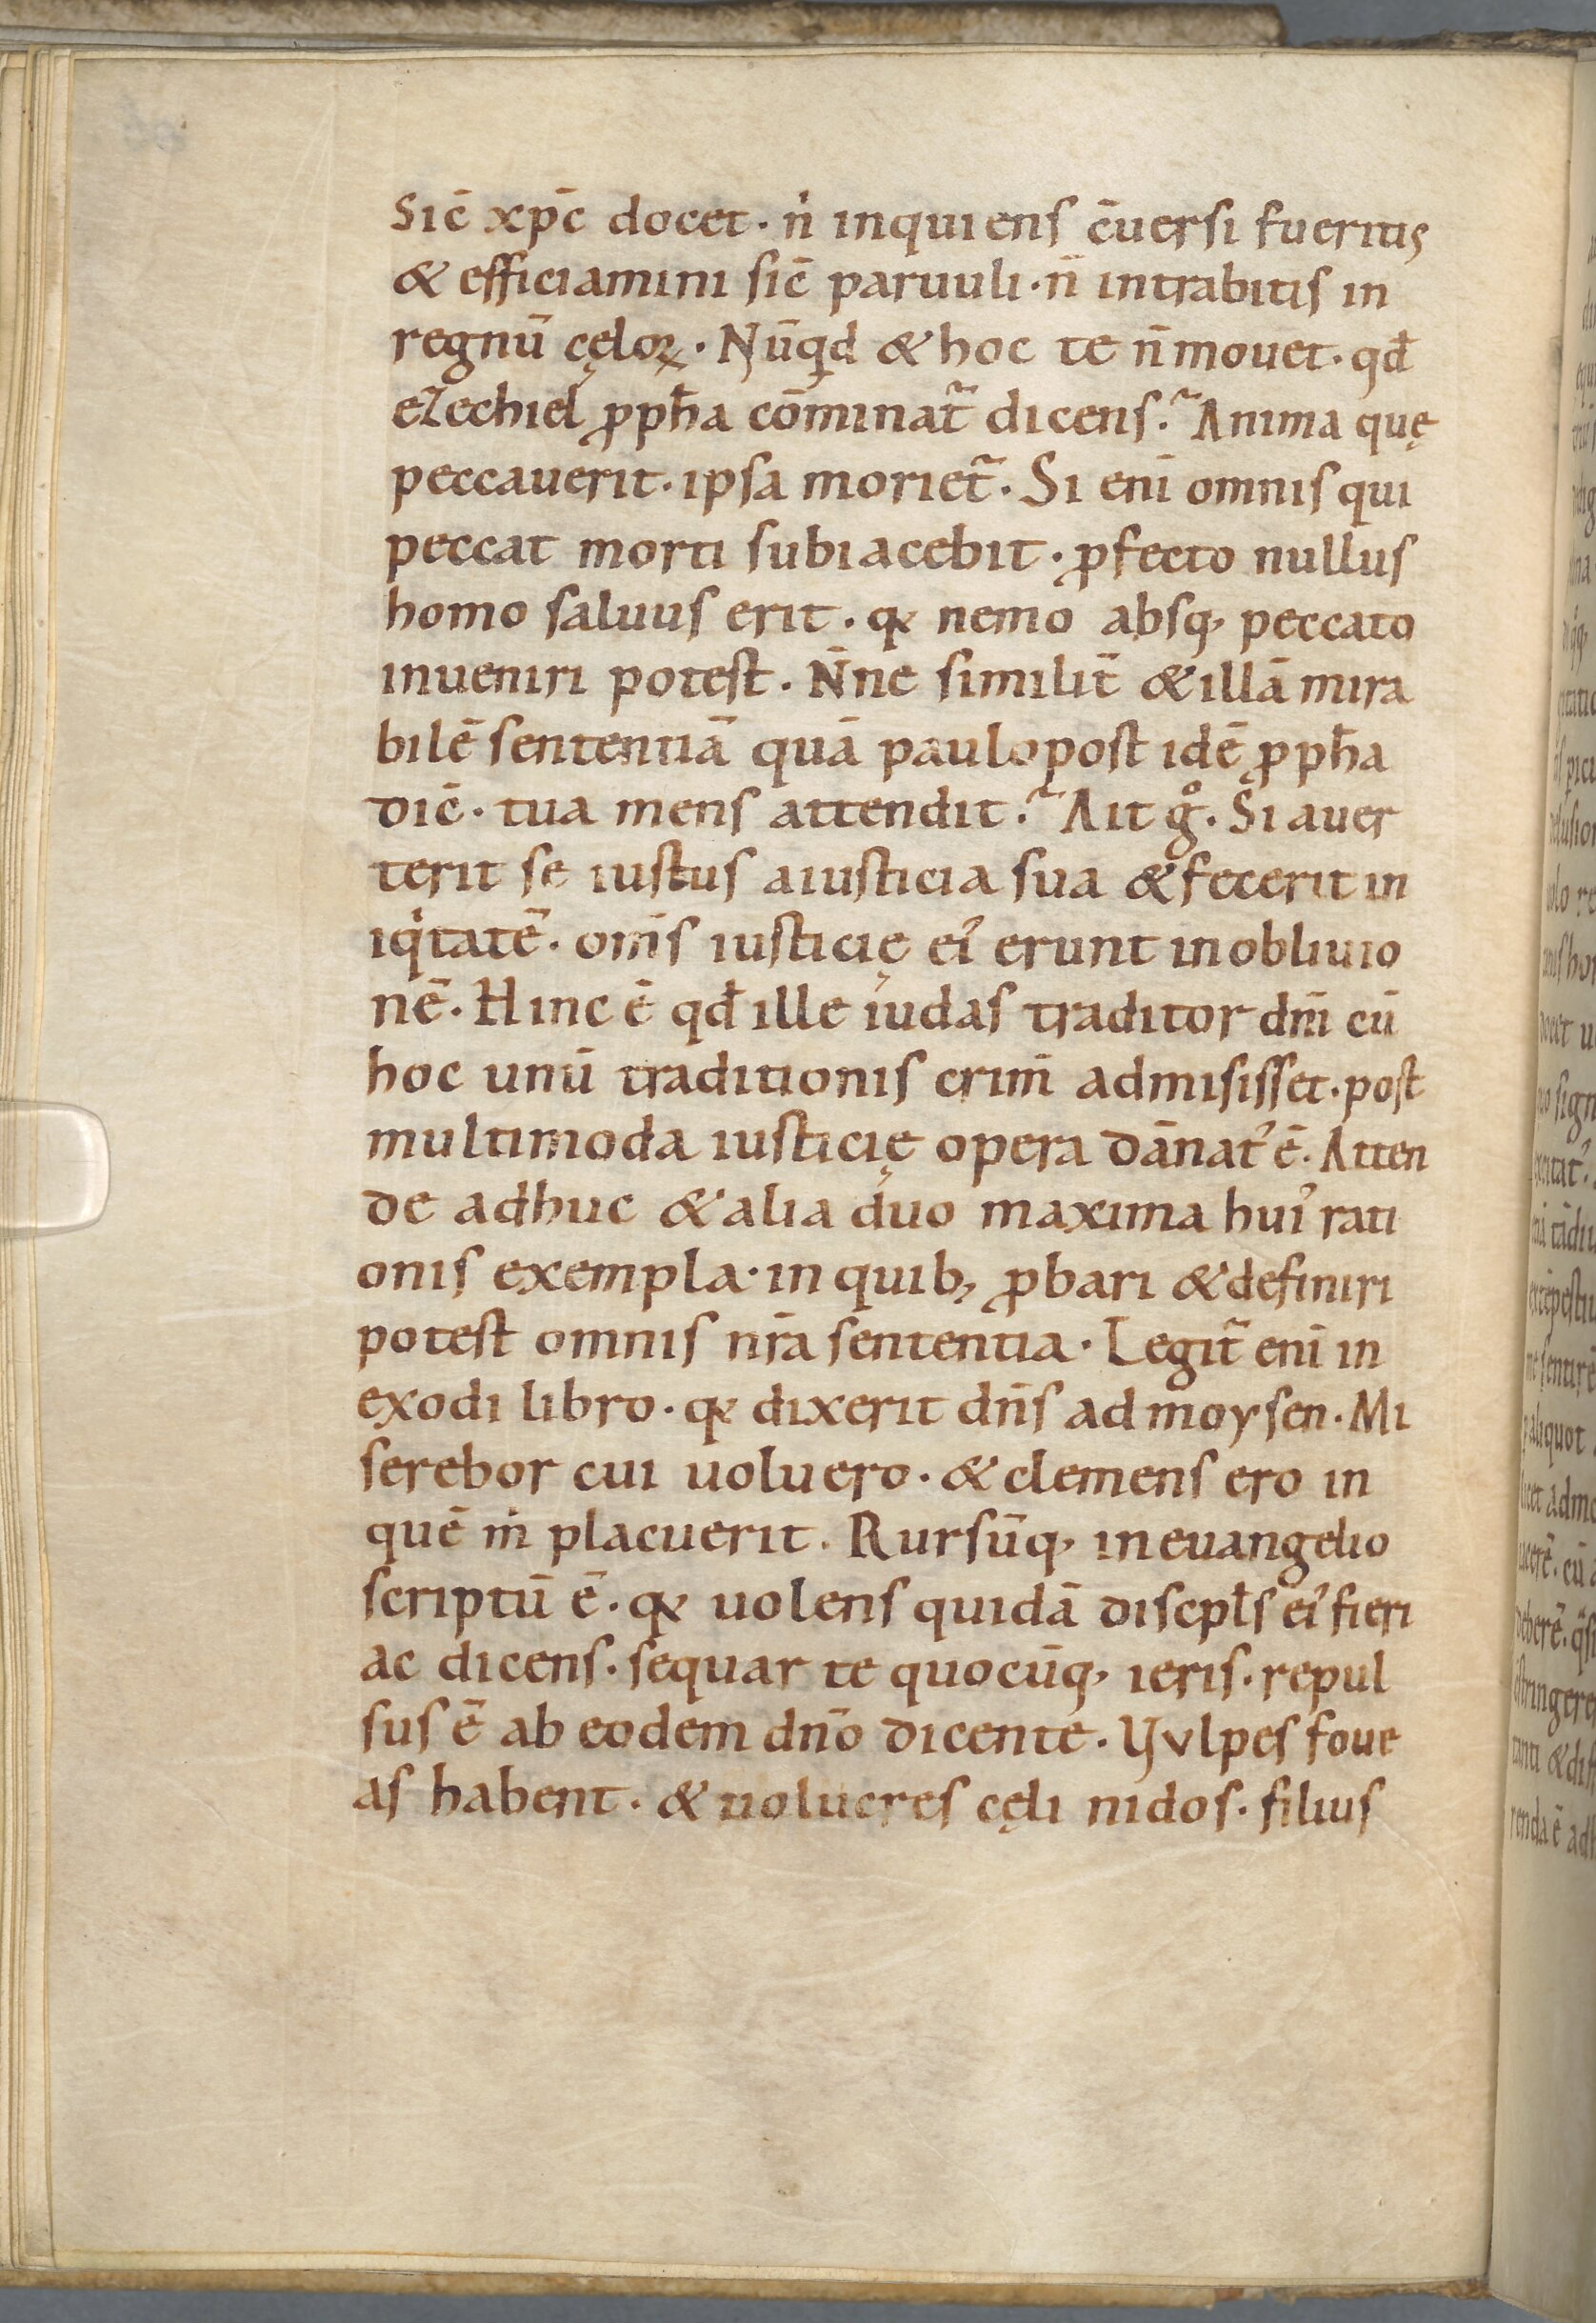 Sic̄ xp̄c docet · n̍ inquiens c̄uersi fueritis
& efficiamini sic̄ paruuli · n̄ intrabitis in
regnū cęloꝝ · Nūqͥd & hoc te n̄ mouet · qđ
eZechiel ꝓph̄a cōminat᷑ dicens ·᷑ Anima quę
peccauerit · ipsa moriet᷑ · Si eni̅ omnis qui
peccat morti subiacebit · ꝓfecto nullus
homo saluus erit · qꝛ nemo absq, peccato
inueniri potest · N̄ne similit̄ & illā mira
bilē sententiā quā paulopost idē ꝓph̄a
dic̄ · tua mens attendit ·᷑ Ait gͦ · Si auer
terit se iustus aiusticia sua & fecerit in
iqͥtatē · om̄s iusticię ei᾽ erunt inobliuio
nē · Hinc ē qđ ille iudas traditor dn̄i cū
hoc unū traditionis crim̄ admisisset · post
multimoda iusticię opera dānat᾽ ē · Atten
de adhuc & alia duo maxima hui᾽ rati
onis exempla · in quib; ꝓbari & definiri
potest omnis nr̄a sententia · Legit᷑ eni̅ in
exodi libro · qꝛ dixerit dn̄s ad moysen · Mi
serebor cui uoluero · & clemens ero in
quē m̍ placuerit · Rursūq, in euangelio
scriptū ē · qꝛ uolens quidā discpl̄s ei᾽ fieri
ac dicens · sequar te quocūq, ieris · repul
sus ē ab eodem dn̄o dicente · Vvlpes foue
as habent · & uolucres cęli nidos · filius